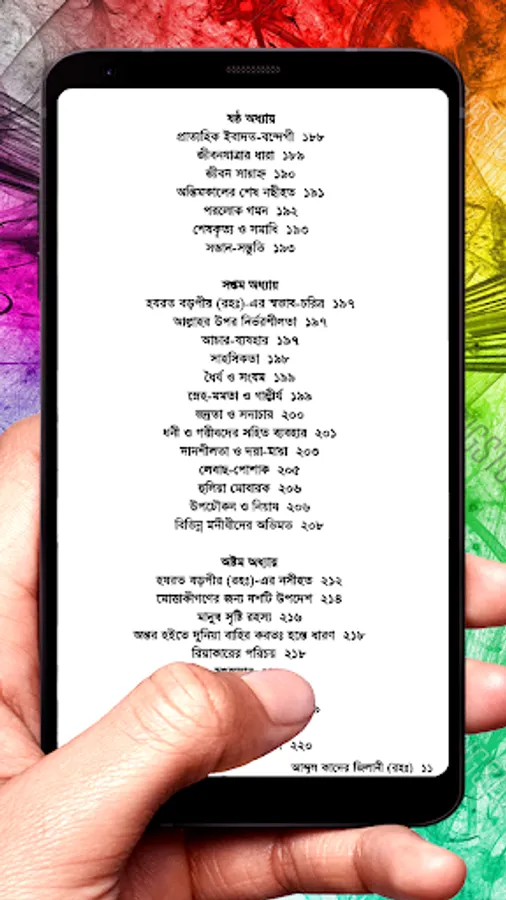 ষষ্ঠ অধ্যায়
প্রাত্যহিক ইবাদত-বন্দেগী ১৮৮
জীবনযাত্রার ধারা ১৮৯
জীবন সায়াহ্ন ১৯০
অন্তিমকালের শেষ নছীহত ১৯১
পরলোক গমন ১৯২
শেষকৃত্য ও সমাধি ১৯৩
সন্তান-সন্তুতি ১৯৩
সপ্তম অধ্যায়
হযরত বড়পীর (রহঃ)-এর স্বভাব-চরিত্র ১৯৭
আল্লাহর উপর নির্ভরশীলতা ১৯৭
আচার-ব্যবহার ১৯৭
সাহসিকতা ১৯৮
ধৈর্য ও সংযম ১৯৯
স্নেহ-মমতা ও গাম্ভীর্য ১৯৯
ভদ্রতা ও সদাচার ২০০
ধনী ও গরীবদের সহিত ব্যবহার ২০১
দানশীলতা ও দয়া-মায়া ২০৩
লেবাছ-পোশাক ২০৫
হুলিয়া মোবারক ২০৬
উপঢৌকন ও নিয়ায ২০৬
বিভিন্ন মনীষীদের অভিমত ২০৮
অষ্টম অধ্যায়
হযরত বড়পীর (রহঃ)-এর নসীহত ২১২
মোত্তাকীগণের জন্য দশটি উপদেশ ২১৪
মানুষ সৃষ্টি রহস্য ২১৬
অন্তর হইতে দুনিয়া বাহির করতঃ হস্তে ধারণ ২১৮
রিয়াকারের পরিচয় ২১৮
২২০
আব্দুল কাদের জিলানী (রহঃ) ১১